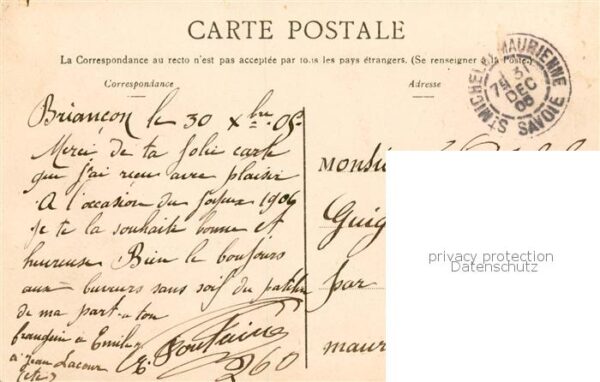 CARTE POSTALE
La Correspondance au recto n'est pas acceptée par tous les pays étrangers. (Se renseigner à la Poste)
Correspondance
Adresse
ST MICHEL DE MAURIENNE
DEC
SAVOIE
Briançon le 30 Xbre 05
Merci de ta jolie carte
que j'ai reçu avec plaisir
A l'occasion du joyeux 1906
je te la souhaite bonne et
heureuse Bien le bonjour
aux buveurs sans soif du
de ma part a ton
frangin à Emile
à Jean Lacour
(etc)
E. Fontaine
260
Monsie
Guig
par
maur
privacy protection
Datenschutz